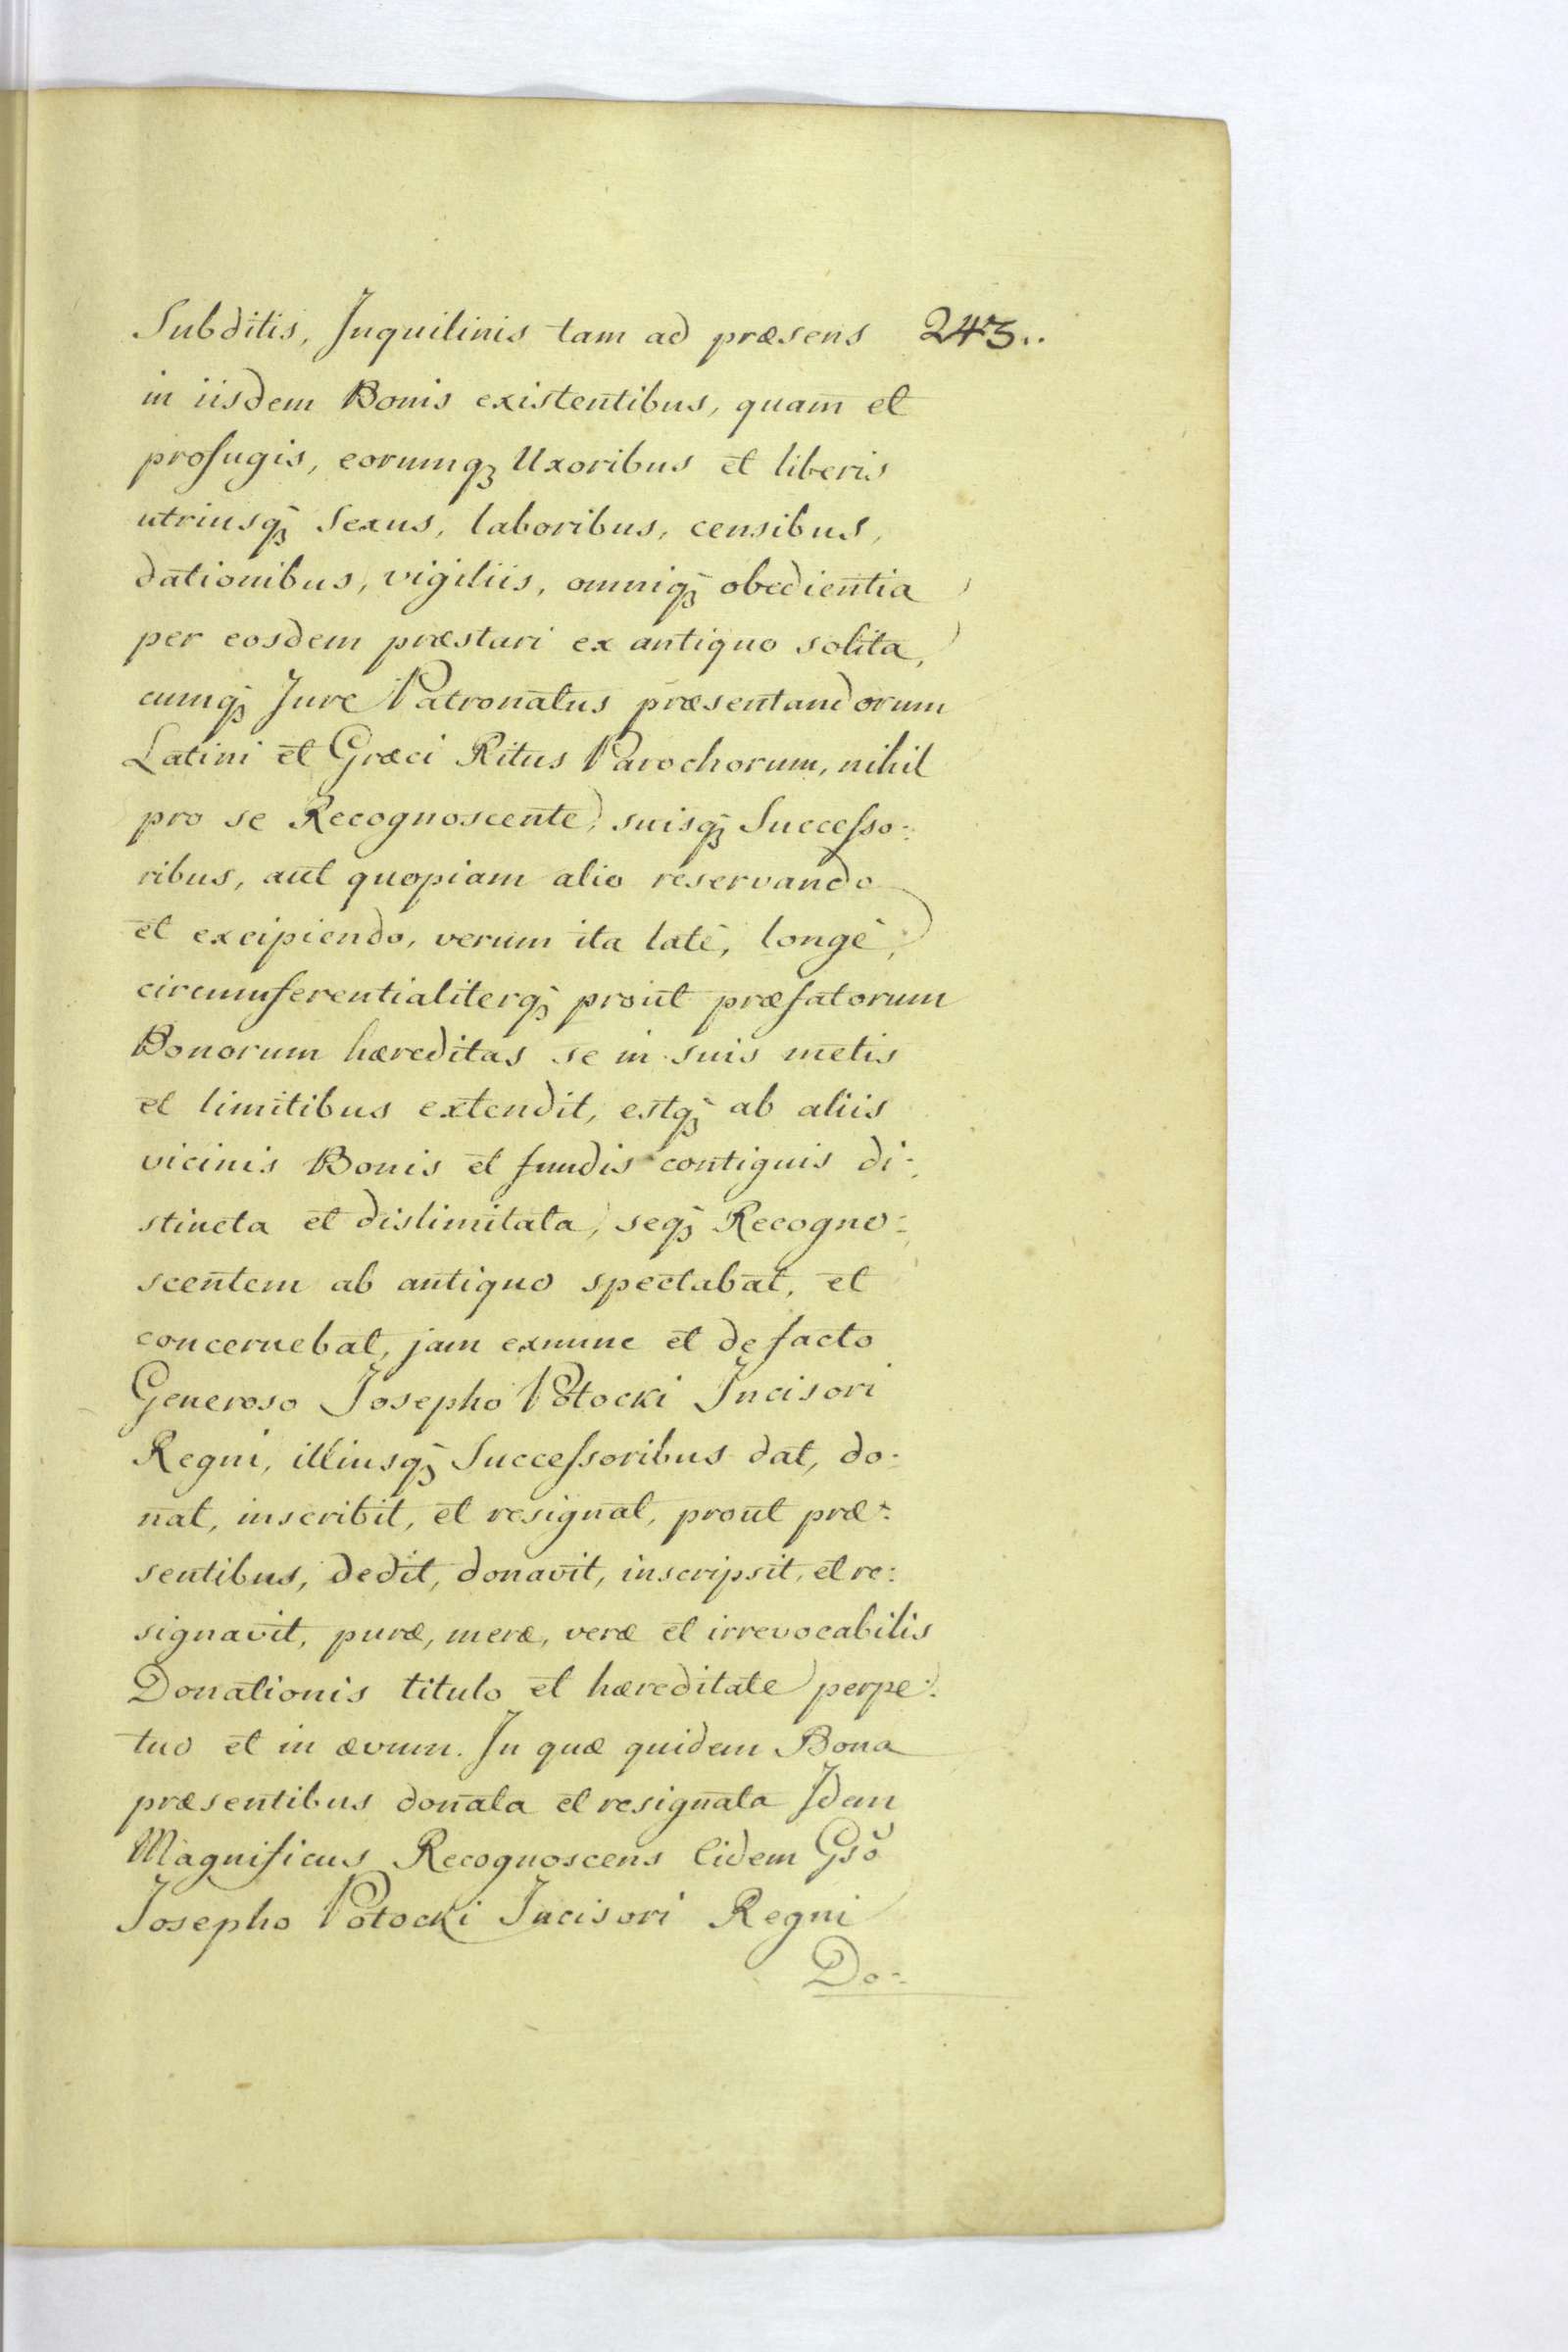 Subditis, Inquilinis tam ad præsens 243..
in iisdem Bonis existentibus, quam et
profugis, eorumqꝫ Uxoribus et liberis
utriusqꝫ Sexus, laboribus, censibus,
dationibus, vigiliis, omniqꝫ obedientia
per eosdem præstari ex antiquo solita,
cumqꝫ Jure Patronatus præsentandorum
Latini et Græci Ritus Parochorum, nihil
pro se Recognoscente, suisqꝫ Successo:
ribus, aut quopiam alio reservando
et excipiendo, verum ita latè, longè,
circumferentialiterqꝫ prout præfatorum
Bonorum hæreditas se in suis metis
et limitibus extendit, estqꝫ ab aliis
vicinis Bonis et fundis contiguis di:
stincta et dislimitata, seqꝫ Recogno:
scentem ab antiquo spectabat, et
concernebat, jam exnunc et de facto
Generoso Josepho Potocki Incisori
Regni, illiusqꝫ Successoribus dat, do:
nat, inscribit, et resignat, prout præ:
sentibus, dedit, donavit, inscripsit, et re:
signavit, puræ, meræ, veræ et irrevocabilis
Donationis titulo et hæreditate perpe:
tuo et in ævum. In quæ quidem Bona
præsentibus donata et resignata Idem
Magnificus Recognoscens Eidem Gsō
Josepho Potocki Incisori Regni
Do: